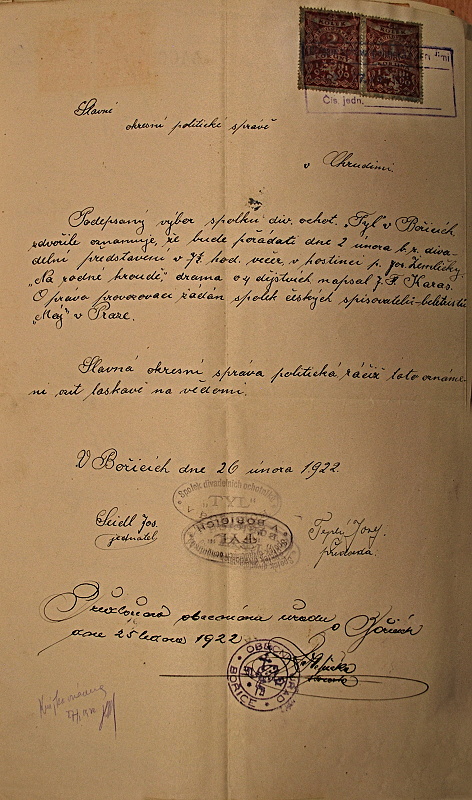 Čís. jedn.
Slavné
okresní politické správě
v Chrudimi.
Podepsaný výbor spolku div. ochot. „Tyl" v Bořicích
zdvořile oznamuje, že bude pořádati dne 2 února b.r. diva-
delní představení v 7½ hod. večer, v hostinci p. Jos. Zemličky,
„Na rodné hroudě," drama o 4 dějstvích napsal J. F. Karas.
O právo provozovací žádán spolek českých spisovatelů-beletristů
„Máj" v Praze.
Slavná okresní správa politická račiž toto oznáme-
ní vzít laskavě na vědomí.
V Bořicích dne 26 února 1922.
Spolek divadelních ochotníků
"TYL"
V BOŘICÍCH
Seidl Jos.
jednatel
Teplý Josef
předseda
obecnímu úřadu v Bořicích
dne 25 ledna 1922
OBECNÍ ÚŘAD
BOŘICE
starosta